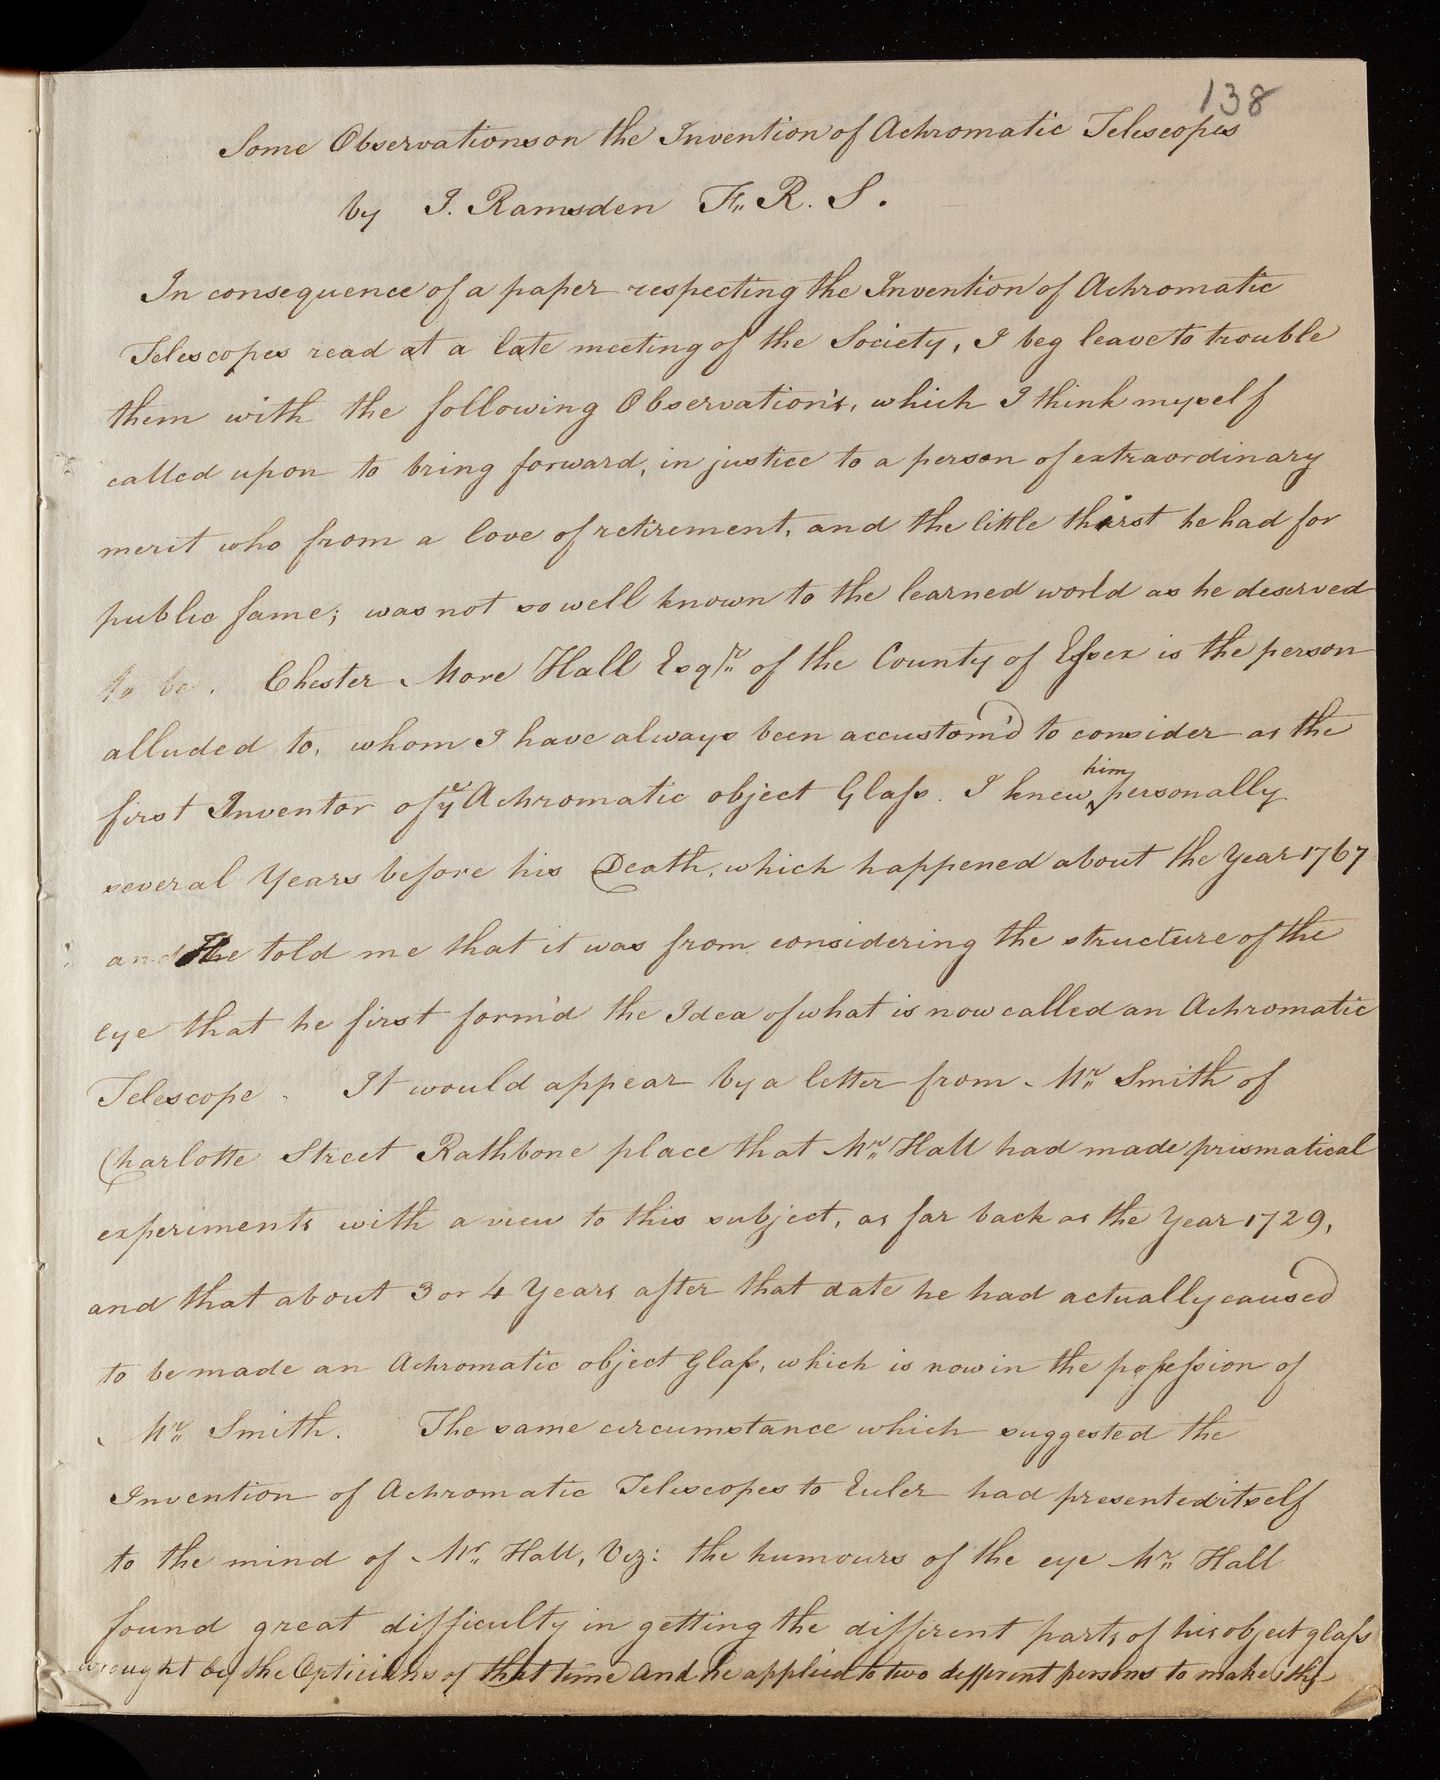 138
Some Observations on the Invention of Achromatic Telescopes
by J. Ramsden F. R. S.
In consequence of a paper respecting the Invention of Achromatic
Telescopes read at a late meeting of the Society, I beg leave to trouble
them with the following Observation's, which I think myself
called upon to bring forward, in justice to a person of extraordinary
merit who from a love of retirement, and the little thirst he had for
public fame; was not so well known to the learned world as he deserved
to be. Chester More Hall Esqr. of the County of Essex is the person
alluded to, whom I have always been accustom'd to consider as the
first Inventor of ye Achromatic object Glass. I knew him personally
several Years before his Death, which happened about the Year 1767
and He told me that it was from considering the structure of the
eye that he first form'd the Idea of what is now called an Achromatic
Telescope. It would appear by a letter from Mr. Smith of
Charlotte Street Rathbone place that Mr. Hall had made prismatical
experiments with a view to this subject, as far back as the Year 1729,
and that about 3 or 4 Years after that date he had actually caused
to be made an Achromatic object Glass, which is now in the possession of
Mr. Smith. The same circumstance which suggested the
Invention of Achromatic Telescopes to Euler had presented itself
to the mind of Mr. Hall, Viz: the humours of the eye Mr. Hall
found great difficulty in getting the different parts of his object glass
wrought by the Opticians of that time and he applied to two different persons to make the